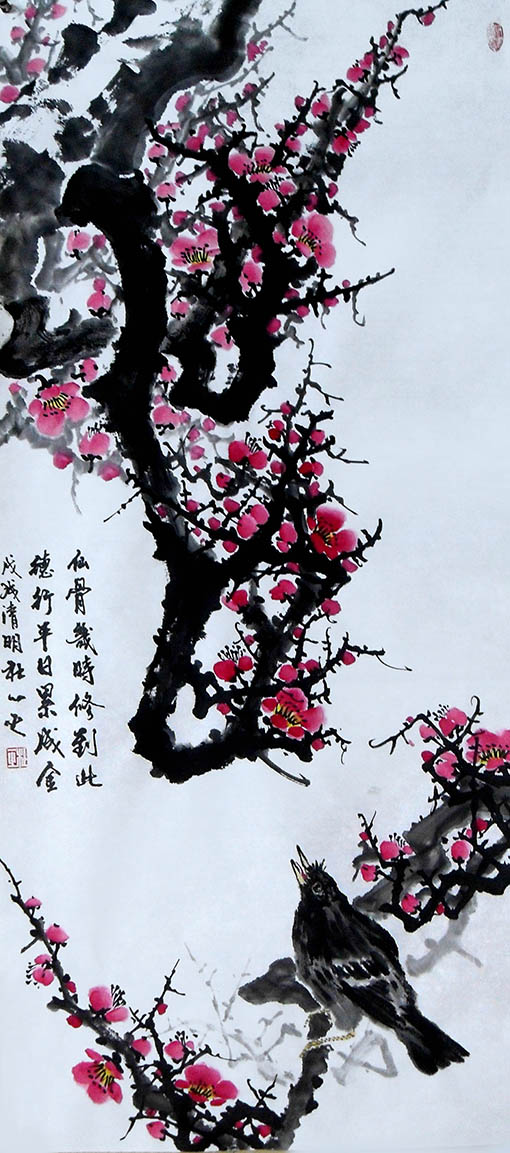 仙骨幾時修到此
德行平日累成金
戊戌清明杜